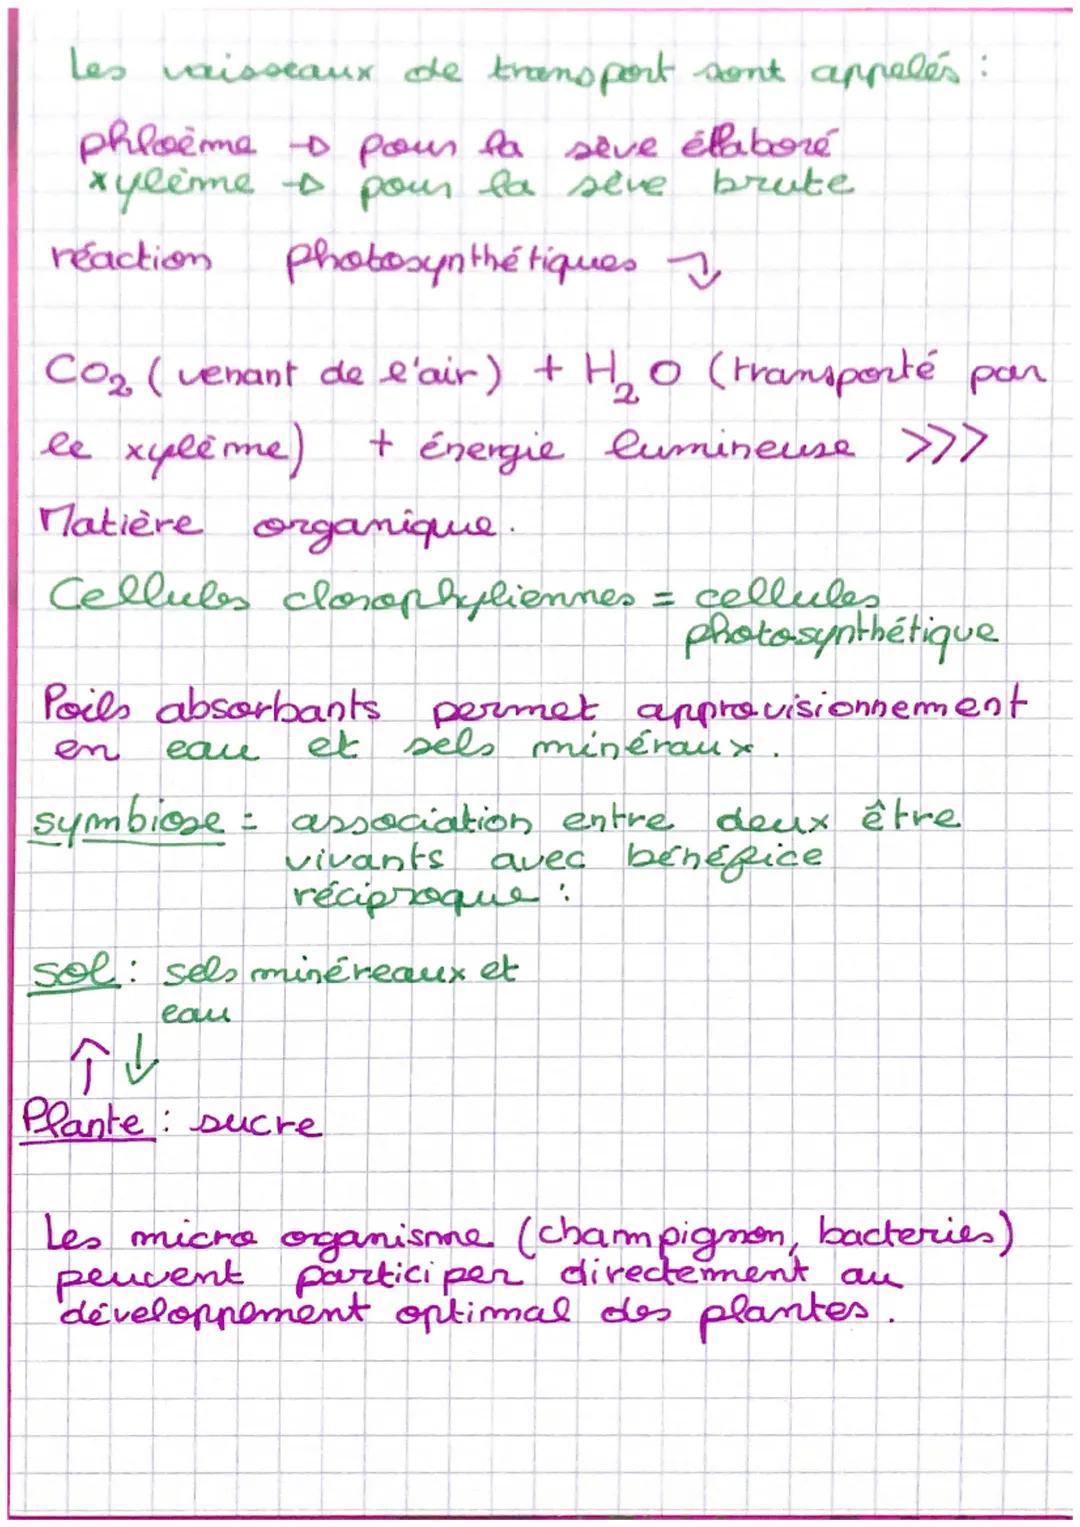 Les vaisseaux de transport sont appelés :
phloème → pour la sève élaboré
xylème → pour la sève brute
réaction photosynthétiques ↴
CO₂ (venant de l'air) + H₂O (transporté par
le xylème) + énergie lumineuse >>>
Matière organique.
Cellules clorophyliennes = cellules
photosynthétique
Poils absorbants permet approvisionnement
en eau et sels minéraux.
symbiose = association entre deux être
vivants avec bénéfice
réciproque :
sol : sels minéreaux et
eau
↑ ↓
Plante : sucre
Les micro organisme (champignon, bacteries)
peuvent participer directement au
développement optimal des plantes.